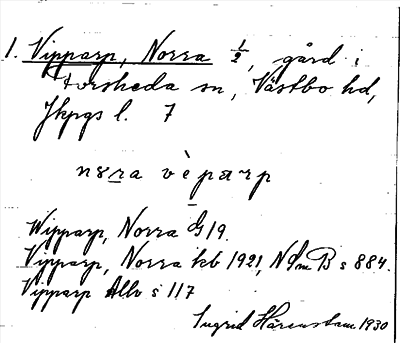 1. Vipparp, Norra 1/2, gård i
Forsheda sn, Västbo hd,
Jkpgs l. 7
nøra vèparp
Wipparp, Norra G 19.
Vipparp, Norra kb 1921, NSmB s 884.
Vipparp Allb s 117
Ingrid Härenstam 1930